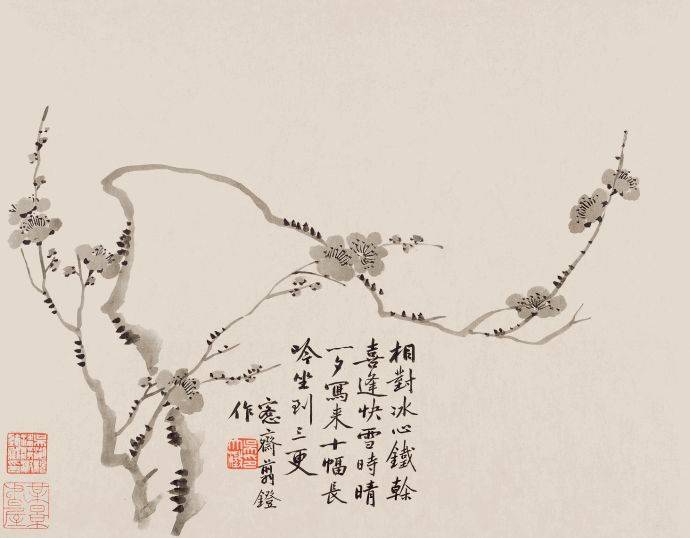 相對冰心鐵榦
喜逢快雪時晴
一夕寫來十幅長
吟坐到三更
窓齋翦鐙
作